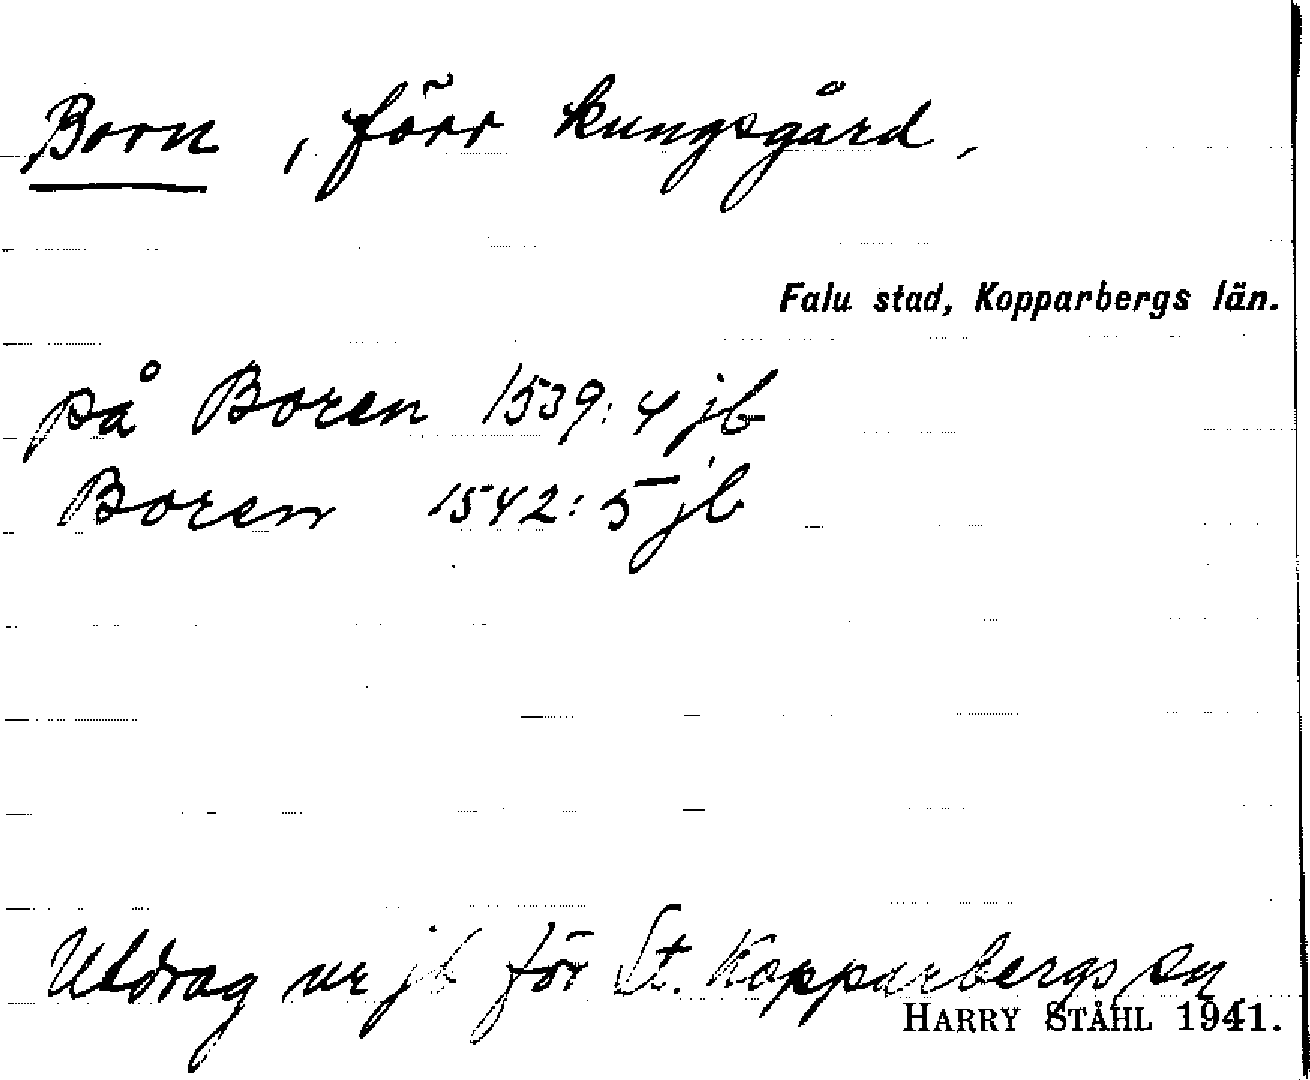 Born, förr kungsgård,
Falu stad, Kopparbergs län.
på Boren 1539:4 jb
Boren 1542:5 jb
Utdrag ur jb för St. Kopparbergs sn
HARRY STÅHL 1941.